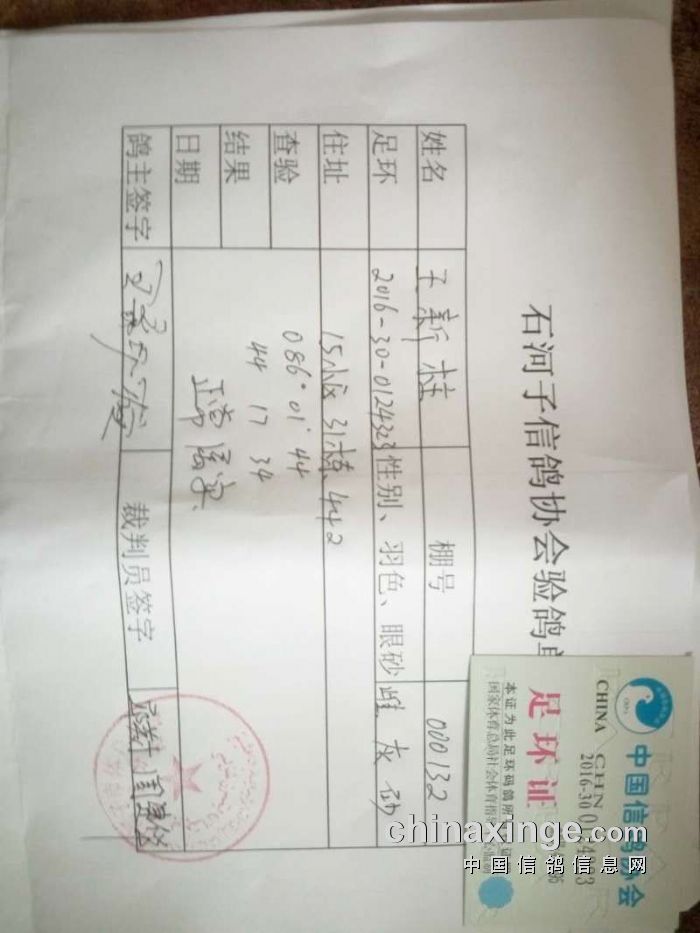 石河子信鸽协会验鸽单
姓名 王新柱 棚号 000132
足环 2016-30-0124323 性别、羽色、眼砂 雌 灰 砂
住址 15小区 31栋 442
查验 086° 01' 44
结果 44 17 34
日期
鸽主签字 裁判员签字
中国信鸽协会
CHINA CHN
2016-30
足环证
本证为此足环码鸽所
国家体育总局社会体育指
chinaxinge.com
中国信鸽信息网